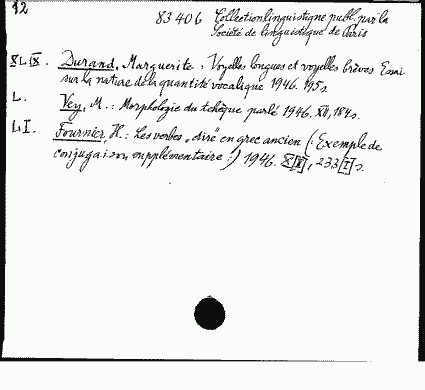 12
83406 Collection linguistique publ. par la
Société de linguistique de Paris
XLIX. Durand, Marguerite : Voyelles longues et voyelles brèves Essai
sur la nature de la quantité vocalique 1946. 195 s.
L. Vey, M. : Morphologie du tchèque parlé 1946. XII, 184 s.
LI. Fournier, H. : Les verbes „dire" en grec ancien (: Exemple de
conjugaison supplémentaire :) 1946. 233 [I] s.